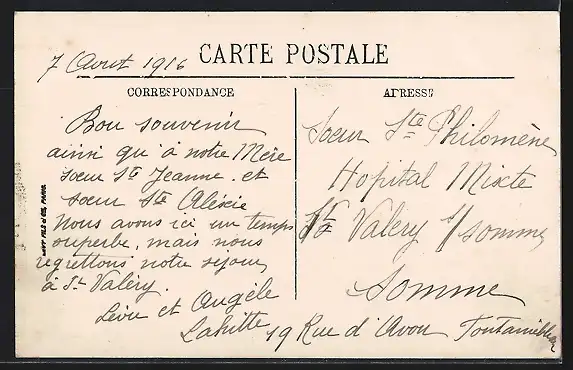 7 Aout 1916
CARTE POSTALE
CORRESPONDANCE
ADRESSE
Bon souvenir
ainsi qu'à notre Mère
soeur Ste Jeanne. et
soeur Ste Aléxie
Nous avons ici un temps
superbe, mais nous
regrettons notre sejour
à St Valéry.
Léon et Angèle
Lahitte 19 Rue d'Avon Fontainebleau
Soeur Ste Philomène
Hopital Mixte
St Valery s/somme
Somme
LEVY FILS & CIE, PARIS